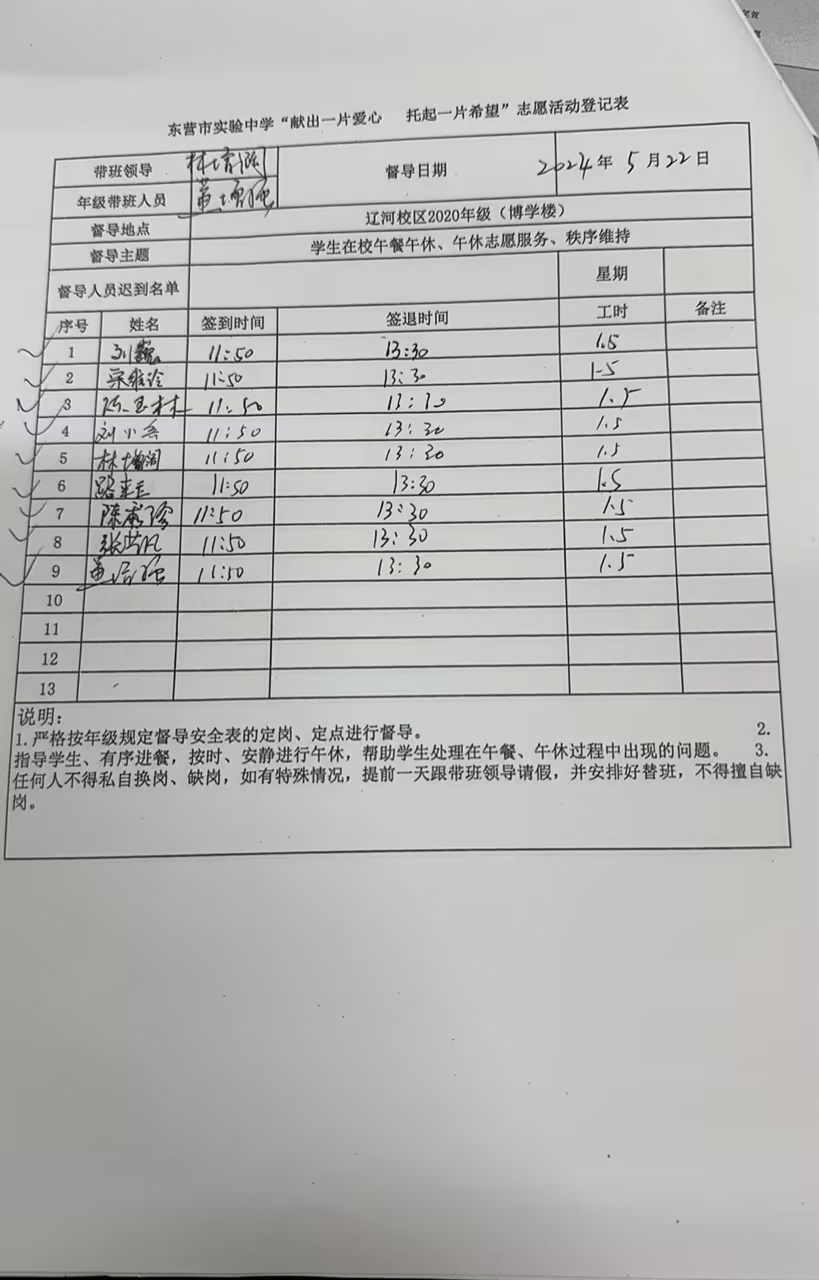 东营市实验中学“献出一片爱心 托起一片希望”志愿活动登记表
带班领导 林增阔 督导日期 2024年 5月22日
年级带班人员
督导地点 辽河校区2020年级（博学楼）
督导主题 学生在校午餐午休、午休志愿服务、秩序维持
督导人员迟到名单 星期
序号 姓名 签到时间 签退时间 工时 备注
1 刘巍 11:50 13:30 1.5
2 11:50 13:30 1.5
3 11:50 13:30 1.5
4 刘小 11:50 13:30 1.5
5 林增阔 11:50 13:30 1.5
6 路 11:50 13:30 1.5
7 陈 11:50 13:30 1.5
8 张 11:50 13:30 1.5
9 11:50 13:30 1.5
10
11
12
13
说明：
1.严格按年级规定督导安全表的定岗、定点进行督导。 2.
指导学生、有序进餐，按时、安静进行午休，帮助学生处理在午餐、午休过程中出现的问题。 3.
任何人不得私自换岗、缺岗，如有特殊情况，提前一天跟带班领导请假，并安排好替班，不得擅自缺
岗。